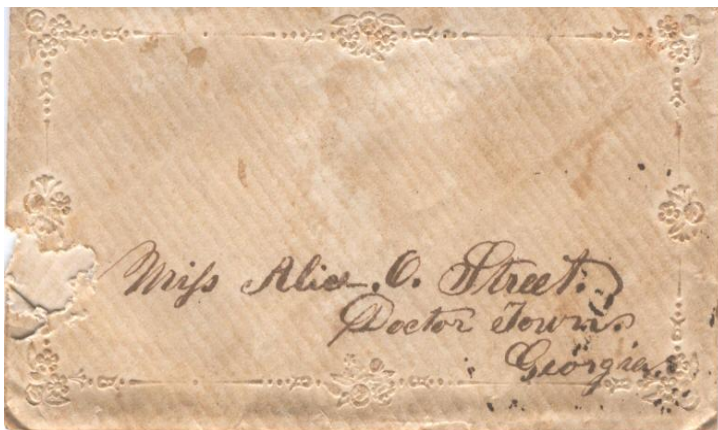 Miss Alice. O. Street.
Doctor Town.
Georgia.